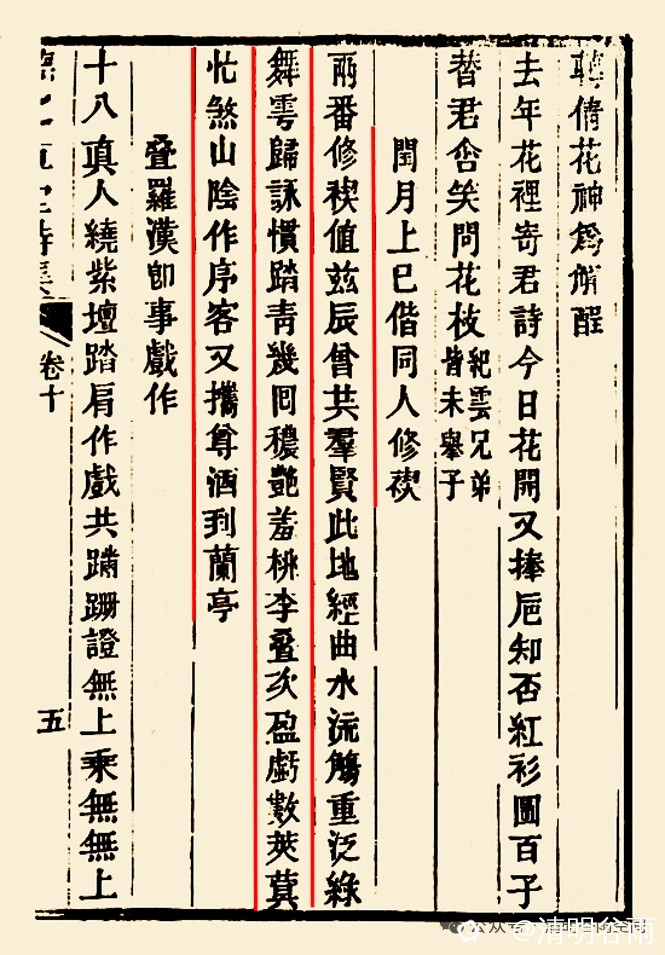 聘倩花神爲解酲
去年花裡寄君詩今日花開又捧卮知否紅衫圖百子
替君含笑問花枝紀雲兄弟皆未舉子
閏月上巳偕同人修禊
兩番修禊值兹辰曾共羣賢此地經曲水流觴重泛綠
舞雩歸詠慣踏青幾回穠艶羞桃李疊次盈虧數莢蓂
忙煞山陰作序客又攜尊酒到蘭亭
疊羅漢即事戲作
十八真人繞紫壇踏肩作戲共蹣跚證無上乘無無上
卷十
五
@清明谷雨